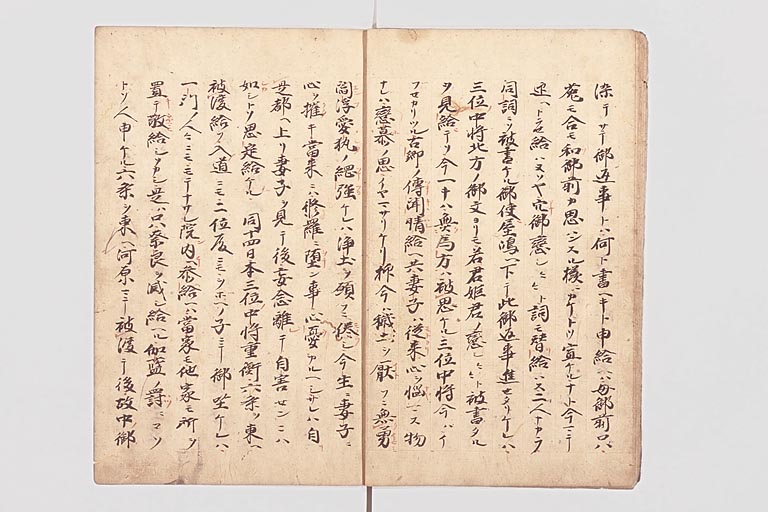 染テサテ御返事トハ何ト書ヘキト申給ヘハ母御前只ハ
菟モ合モ和御前カ思ハンスル様ニカケトソ宣ケルサテ今マテ
迎ヘトラセ給ハヌソヤ穴御恋シ々々ト詞モ替給ハス二人ナカラ
同詞ニソ被書ケル御使屋嶋ヘ下テ此御返事進セタリケレハ
三位中将北方ノ御文ヨリモ若君姫君ノ恋シ々々ト被書タル
ヲ見給テソ今一キハ無為方ハ被思ケル三位中将今ハイ
フセカリツル古郷ノ傳聞情給ヘ共妻子ハ従来心ヲ悩マス物
ナレハ恋慕ノ思イヤマサリケリ抑今ハ穢土ヲ厭フニ無勇
閻浮愛執ノ綱強ケレハ浄土ヲ願フニ倦シ今生ニハ妻子ニ
心ヲ摧キ當来ニハ修羅ニ堕ン事心憂カルヘシサレハ自
是都ヘ上リ妻子ヲ見テ後妄念離テ自害センニハ
如シトソ思定給ケル 同十四日本三位中将重衡六条ヲ東ヘ
被渡給フ入道ニモ二位殿ニモヲホヘノ子ニテ御坐ケレハ
一門ノ人々ニモモテナサレ院内ヘ参給ヘハ當家モ他家モ所ヲ
置テ敬給シソカシ是ハ只奈良ヲ滅シ給ヘル伽藍ノ罸ニコソ
トソ人申ケル六条ヲ東ヘ河原マテ被渡テ後故中御